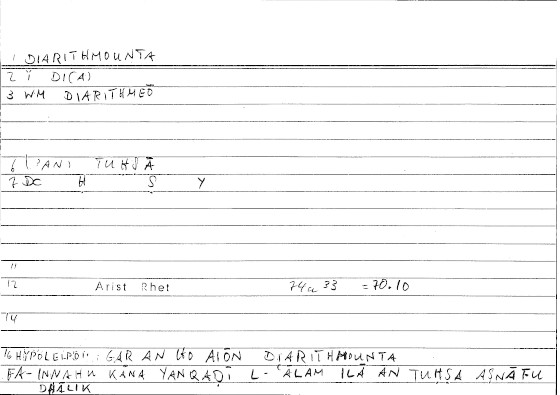 1 DIARITHMOUNTA
2 I DI(A)
3 WM DIARITHMEŌ
6 (ʾAN) TUḤṢĀ
7 DC H S Y
11
12 Arist Rhet 74a 33 =70.10
14
16 : GAR AN HO AIŌN DIARITHMOUNTA
FA-INNAHU KĀNA YANQAḌĪ L-ʿĀLAM ILĀ AN TUḤṢA AṢNĀFU
DHĀLIK